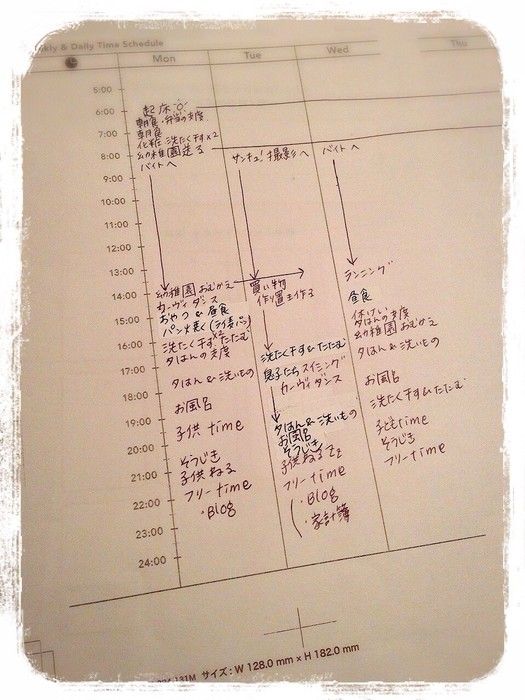 kly & Daily Time Schedule
Mon
Tue
Wed
Thu
5:00
6:00
7:00
8:00
9:00
10:00
11:00
12:00
13:00
14:00
15:00
16:00
17:00
18:00
19:00
20:00
21:00
22:00
23:00
24:00
起床
朝食・弁当の支度
朝食
化粧 洗たく干す×2
幼稚園送る
バイトへ
幼稚園おむかえ
カーヴィダンス
おやつ&昼食
パン焼く
洗たく干す&たたむ
夕はんの支度
夕はん&洗いもの
お風呂
子供 time
そうじき
子供ねる
フリー time
・Blog
サンキュ!撮影へ
買い物
作り置き作る
洗たく干す&たたむ
息子たちスイミング
カーヴィダンス
夕はん&洗いもの
お風呂
そうじき
子供ねる
フリー time
・Blog
・家計簿
バイトへ
ランニング
昼食
休けい
夕はんの支度
幼稚園おむかえ
夕はん&洗いもの
お風呂
洗たく干す&たたむ
子ども time
そうじき
フリー time
131M サイズ:W 128.0 mm × H 182.0 mm